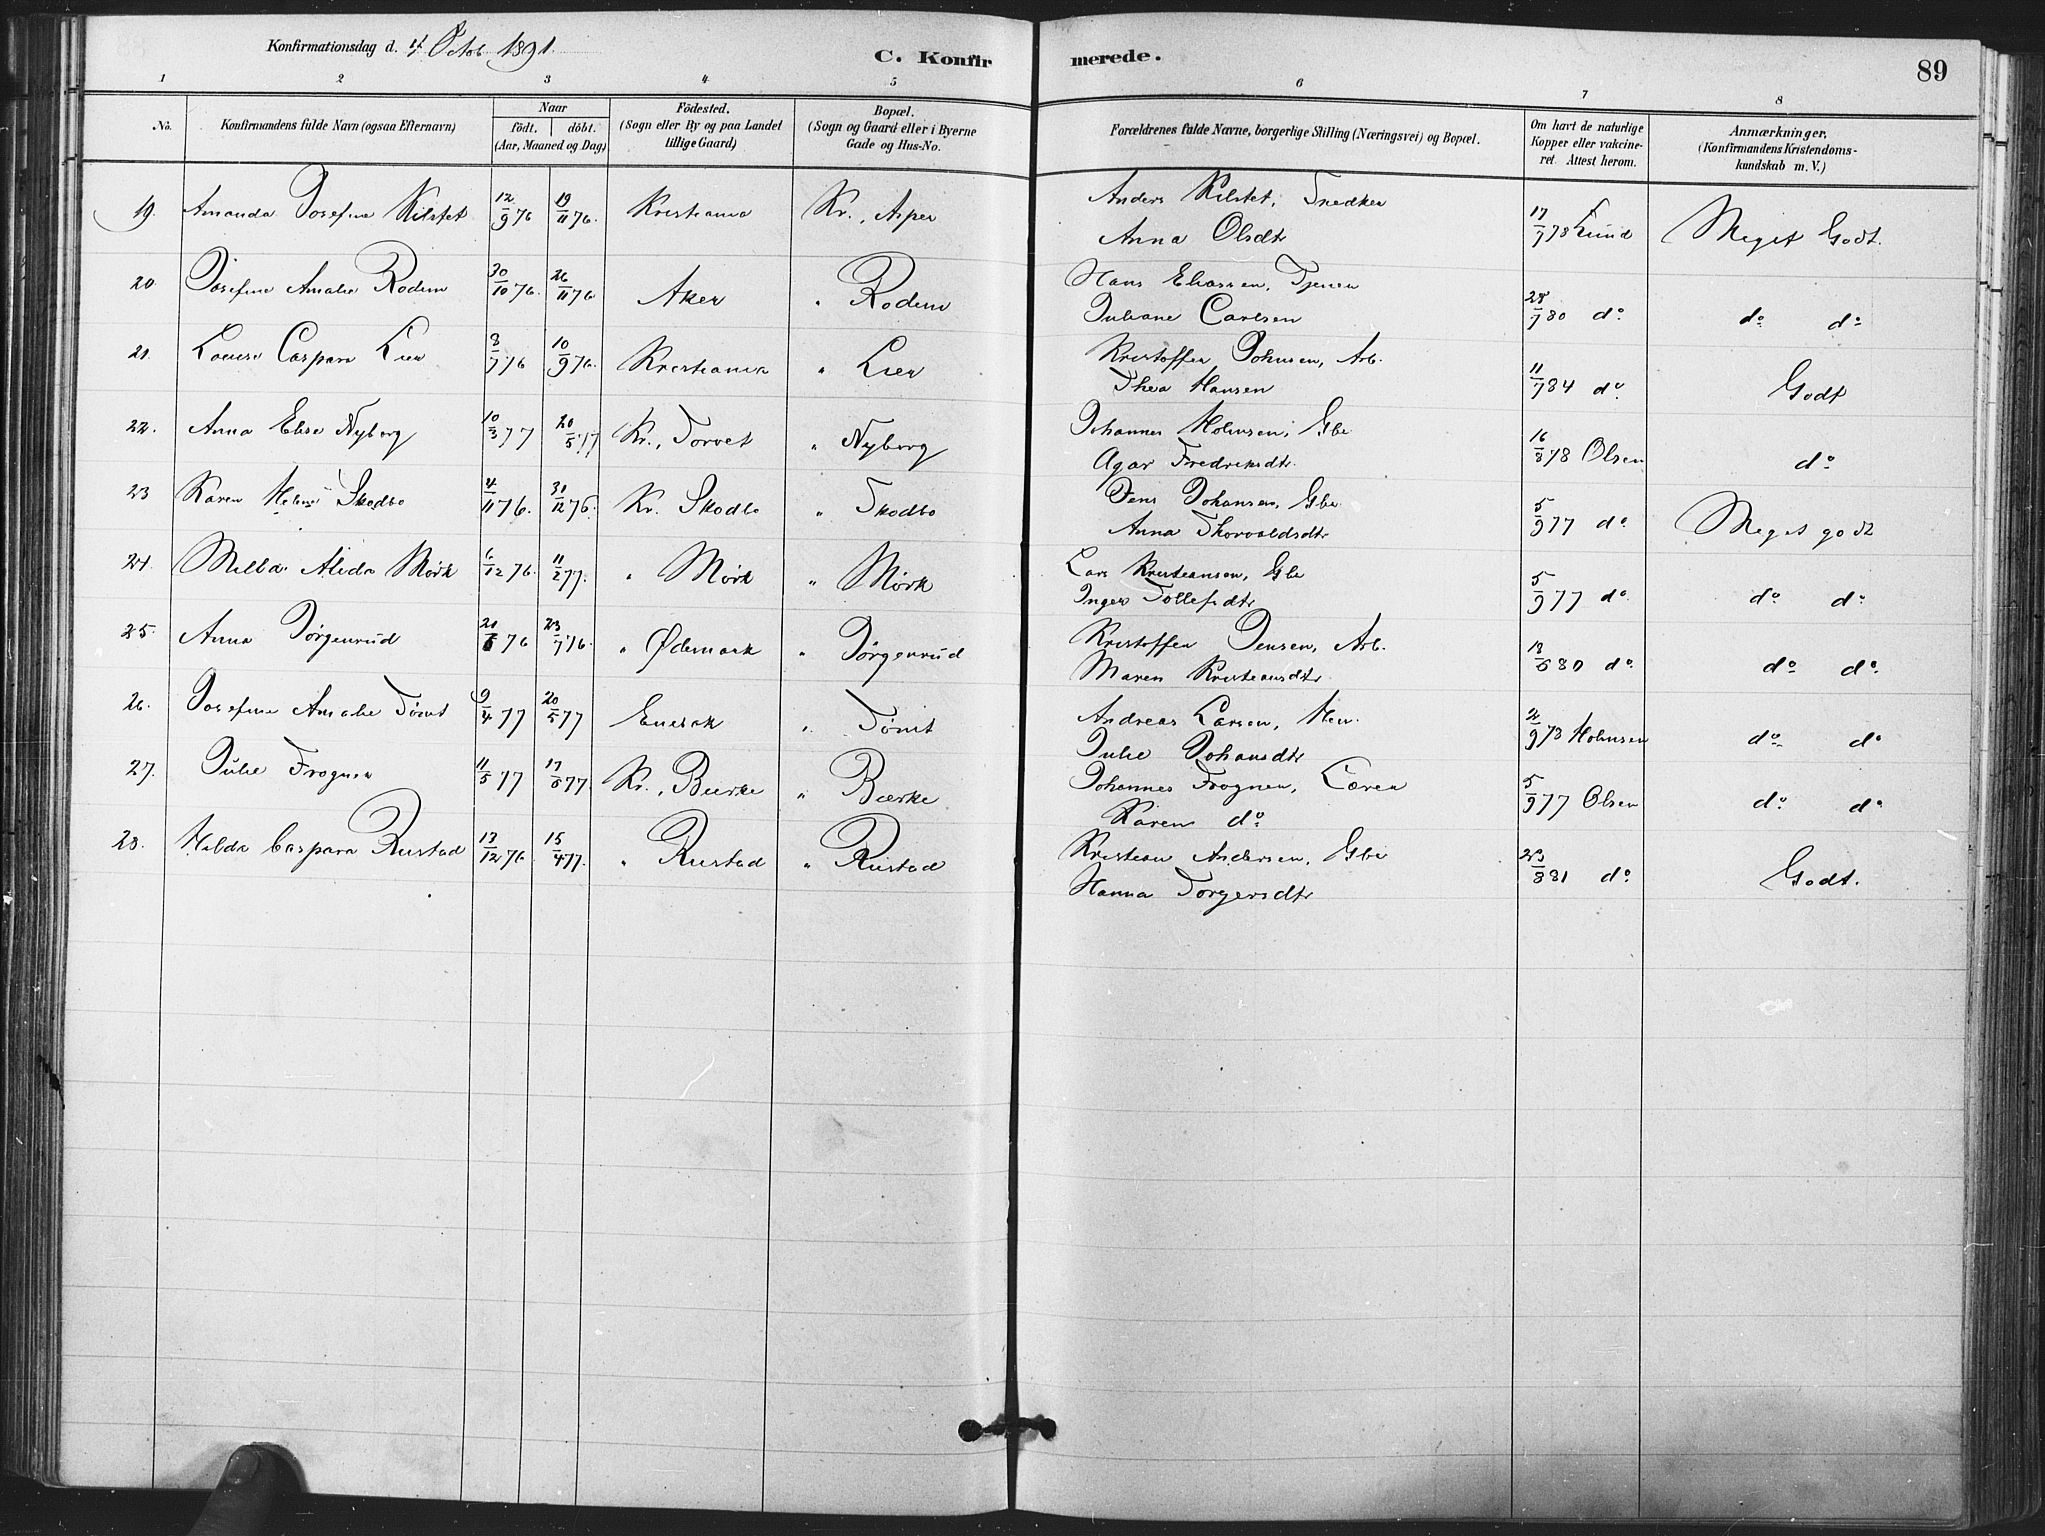 Konfirmationsdag d. 4 Octob. 1891.
C. Konfirmerede.
89
1 2 3 4 5 6 7 8
No.
Konfirmandens fulde Navn (ogsaa Efternavn)
Naar
födt. döbt.
(Aar, Maaned og Dag)
Födested.
(Sogn eller By og paa Landet
tillige Gaard)
Bopæl.
(Sogn og Gaard eller i Byerne
Gade og Hus-No.
Forældrenes fulde Navne, borgerlige Stilling (Næringsvei) og Bopæl.
Om havt de naturlige
Kopper eller vakcine-
ret. Attest herom.
Anmærkninger,
(Konfirmandens Kristendoms-
kundskab m. V.)
19. Amanda Josefine Kilstet 12/9 76 19/11 76. Kristiania Kr., Asper Anders Kilstet, Snedker 17/7 78 Lund Meget Godt.
Anna Olsdtr
20. Josefine Amalie Rodem 30/10 76. 26/11 76 Aker " Rodem Hans Eliassen, Tjener
Juliane Carlsen 28/7 80 do. do do
21. Louise Caspara Lier 8/7 76 10/9 76. Kristiania " Lier Kristoffer Johnsen, Arb.
Thea Hansen 11/7 84 do. Godt
22. Anna Elise Nyborg 10/3 77 20/5 77 Kr., Torvet " Nyborg Johannes Holmsen, Gbr
Agar Fredriksdtr. 16/8 78 Olsen do
23 Karen Helene Skodbo 4/11 76. 31/12 76. Kr. Skodbo " Skodbo Jens Johansen, Gbr.
Anna Thorvaldsdtr 5/9 77 do Meget godt
24. Milda Alida Mörk 6/12 76. 11/2 77. " Mörk " Mörk Lars Kristiansen, Gbr
Inger Tollefsdtr 5/9 77 do. do do
25. Anna Jörgenrud 20/6 76 23/7 76. " Ødemark " Jörgenrud Kristoffer Jensen, Arb.
Maren Kristiansdtr. 18/6 80 do. do do.
26. Josefine Amalie Tömt 9/4 77 20/5 77 Enebak " Tömt Andreas Larsen,
Julie Johansdtr 2/9 78 Holmsen do do
27. Julie Frogner 11/5 77 17/6 77. Kr., Bierke " Bærke Johannes Frogner, Lærer
Karen do 5/9 77 Olsen do do
28. Hilda Caspara Rustad 13/12 76 15/4 77. " Rustad " Rustad Kristian Andersen, Gbr
Hanna Torgersdtr 23/8 81 do. Godt.